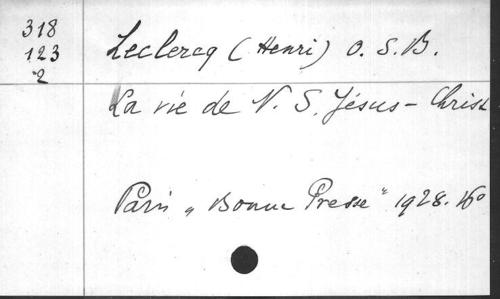 318
123
2
Leclercq (Henri) O. S. B.
La vie de N. S. Jésus-Christ
Paris „Bonne Presse" 1928. 16°